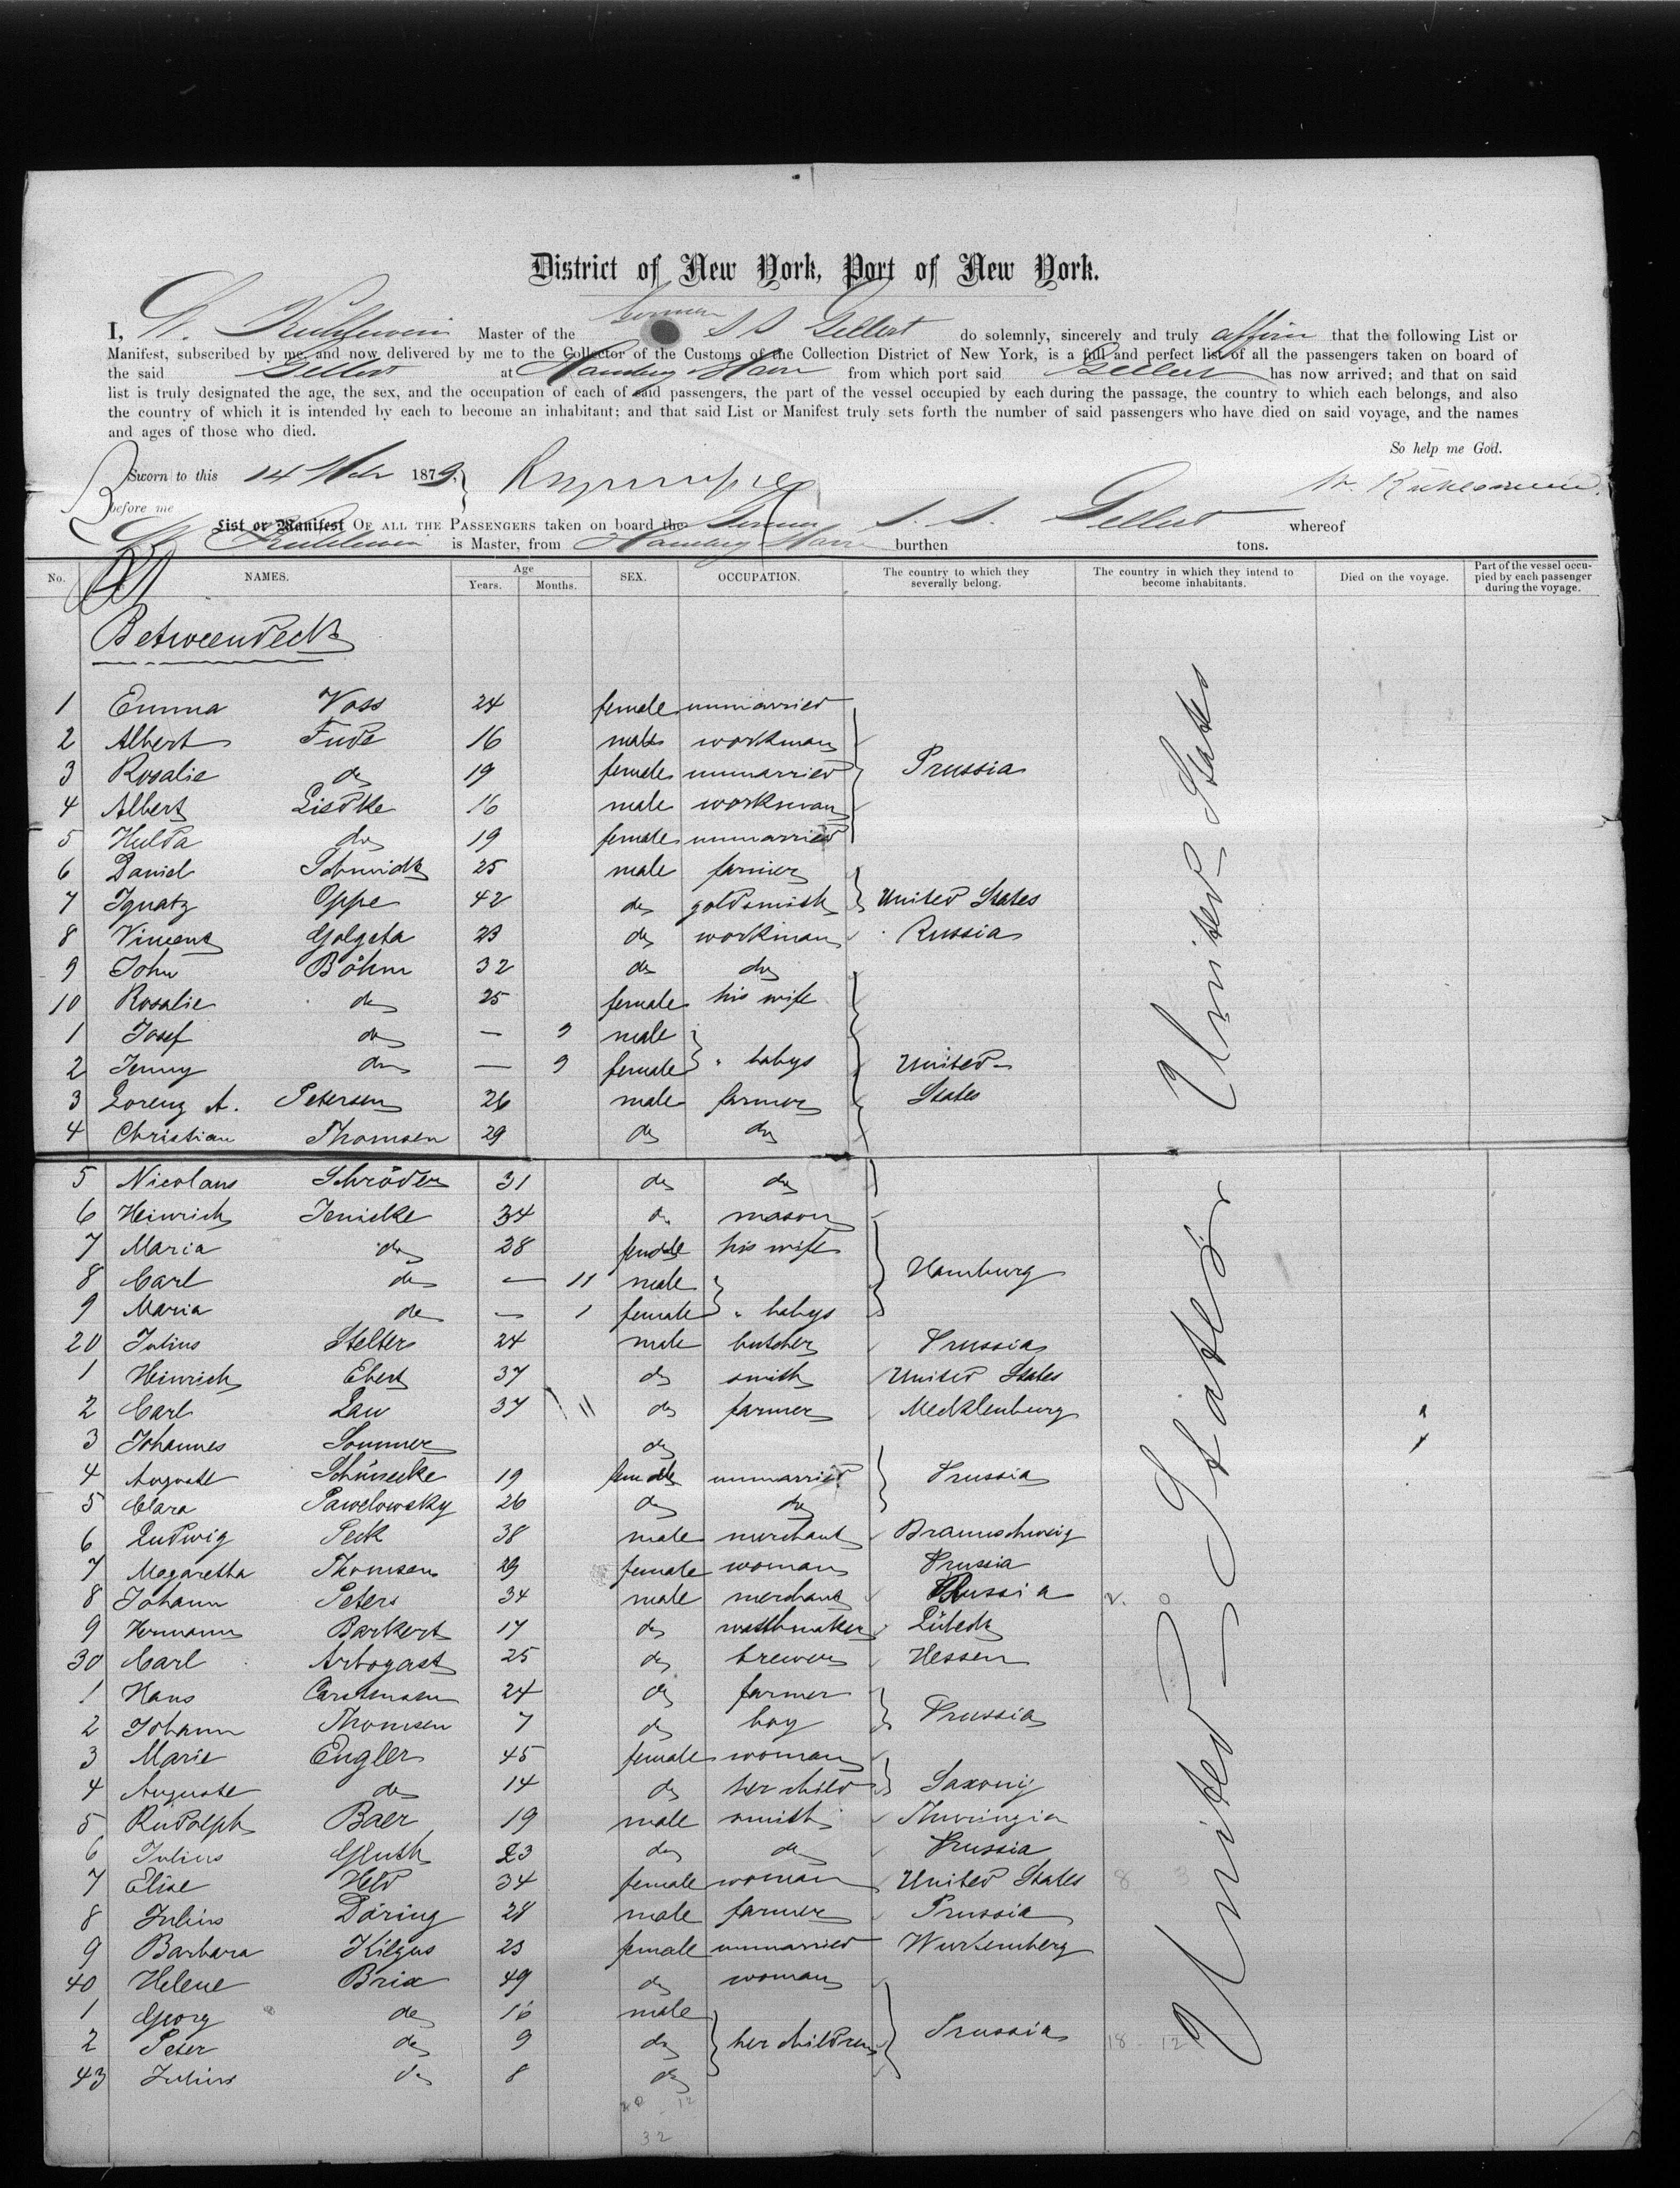 District of New York, Port of New York.
I, W. Kuhlewein Master of the German S S Gellert do solemnly, sincerely and truly affirm that the following List or
Manifest, subscribed by me, and now delivered by me to the Collector of the Customs of the Collection District of New York, is a full and perfect list of all the passengers taken on board of
the said Gellert at Hamburg Havre from which port said Gellert has now arrived; and that on said
list is truly designated the age, the sex, and the occupation of each of said passengers, the part of the vessel occupied by each during the passage, the country to which each belongs, and also
the country of which it is intended by each to become an inhabitant; and that said List or Manifest truly sets forth the number of said passengers who have died on said voyage, and the names
and ages of those who died.
So help me God.
Sworn to this 14 1879.
before me
List or Manifest OF ALL THE PASSENGERS taken on board the German S. S. Gellert whereof
Kuhlewein is Master, from Hamburg Havre burthen tons.
No. NAMES. Age Years. Months. SEX. OCCUPATION. The country to which they severally belong. The country in which they intend to become inhabitants. Died on the voyage. Part of the vessel occupied by each passenger during the voyage.
Betweendeck
United States
1 Emma Voss 24 female unmarried
2 Albert Fude 16 male workman
3 Rosalie do 19 female unmarried Prussia
4 Albert Liedke 16 male workman
5 Hulda do 19 female unmarried
6 Daniel Schmidt 25 male farmer
7 Ignatz Oppe 42 do goldsmith United States
8 Vincenz Golgata 23 do workman Russia
9 John Böhm 32 do do
10 Rosalie do 25 female his wife
1 Josef do — 9 male
2 Jenny do — 9 female babys United
3 Lorenz A. Petersen 26 male farmer States
4 Christian Thomsen 29 do do
5 Nicolaus Schröder 31 do do
6 Heinrich Jenicke 34 do mason
7 Maria do 28 female his wife
8 Carl do — 11 male Hamburg
9 Maria do — 1 female babys
20 Julius Stelter 24 male butcher Prussia
1 Heinrich Ebert 37 do smith United States
2 Carl Lau 37 11 do farmer Mecklenburg
3 Johannes Sommer do
4 Auguste Schünecke 19 female unmarried Prussia
5 Clara Pawelowsky 26 do do
6 Ludwig Peck 38 male merchant Braunschweig
7 Magaretha Thomsen 29 female woman Prussia
8 Johann Peters 34 male merchant Russia
9 Hermann Barkert 17 do watchmaker Lübeck
30 Carl Arbogast 25 do brewer Hessen
1 Hans Carstensen 24 do farmer
2 Johann Thomsen 7 do boy Prussia
3 Marie Engler 45 female woman
4 Auguste do 14 do her child Saxony
5 Rudolph Baer 19 male smith Thuringia
6 Julius Gluth 23 do do Prussia
7 Elise Held 34 female woman United States 8 3
8 Julius Döring 28 male farmer Prussia
9 Barbara Kilgus 23 female unmarried Wurtemberg
40 Helene Brix 49 do woman
1 Georg do 16 male
2 Peter do 9 do her children Prussia 18 - 12
43 Julius do 8 do
United States
20 - 12
32